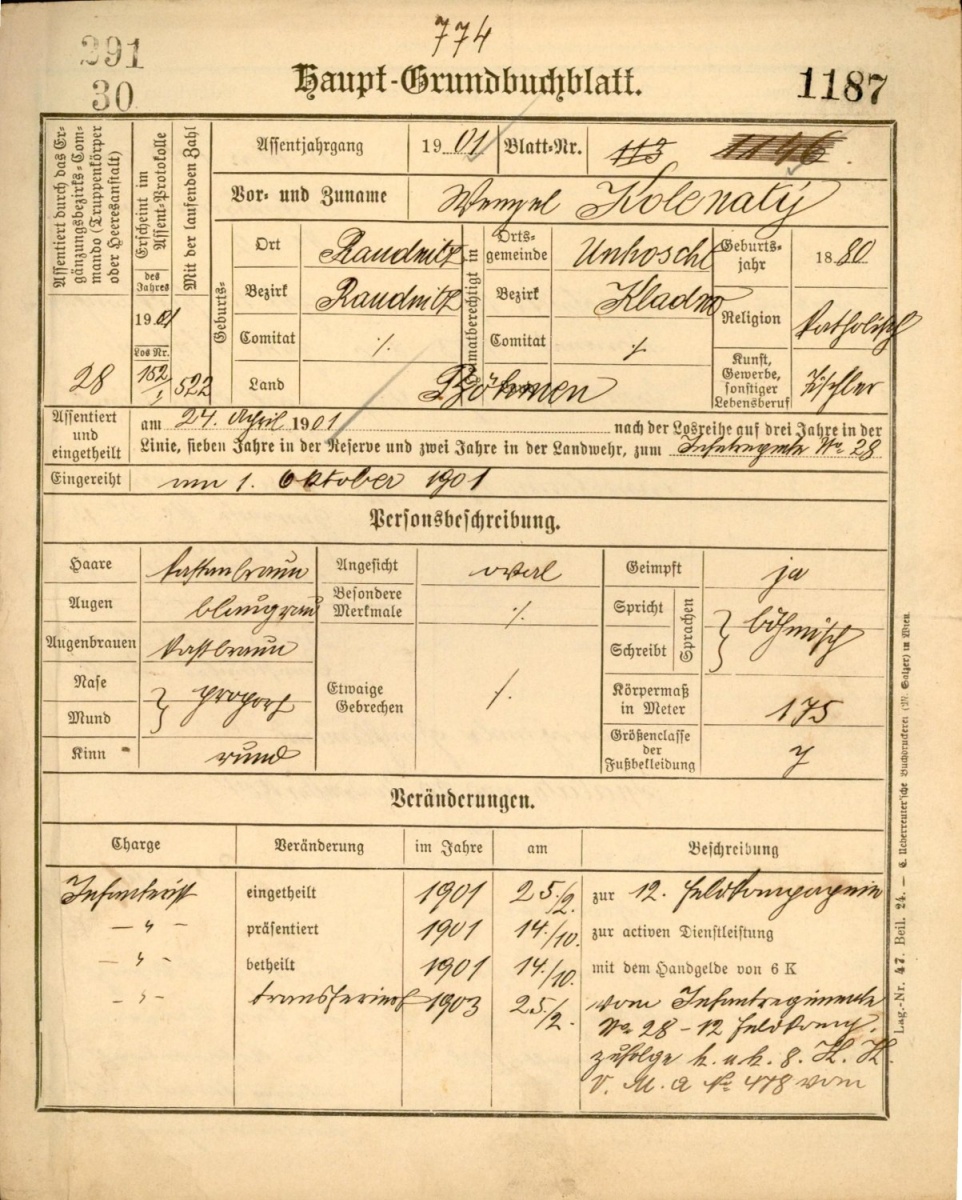 774
291
30
Haupt-Grundbuchblatt.
1187
Assentiert durch das Ergänzungsbezirks-Commando (Truppenkörper oder Heeresanstalt)
28
Erscheint im Assent-Protokolle
des Jahres
1901
Los Nr.
152
Mit der laufenden Zahl
522
Assentjahrgang
1901
Blatt-Nr.
113
1146
Vor- und Zuname
Wenzel Kolenatý
Geburts-
Ort
Raudnitz
Bezirk
Raudnitz
Comitat
·/.
Land
Böhmen
Heimatberechtigt in
Ortsgemeinde
Unhoscht
Bezirk
Kladno
Comitat
·/.
Geburtsjahr
1880
Religion
katholisch
Kunst, Gewerbe, sonstiger Lebensberuf
Tischler
Assentiert und eingetheilt
am 24. April 1901 nach der Losreihe auf drei Jahre in der
Linie, sieben Jahre in der Reserve und zwei Jahre in der Landwehr, zum Infantregimte No 28
Eingereiht
am 1. Oktober 1901
Personsbeschreibung.
Haare
kastanbraun
Augen
blaugrau
Augenbrauen
kastbraun
Nase
Mund
proport
Kinn
rund
Angesicht
oval
Besondere Merkmale
·/.
Etwaige Gebrechen
·/.
Geimpft
ja
Spricht
Schreibt
Sprachen
böhmisch
Körpermaß in Meter
175
Größenclasse der Fußbekleidung
7
Veränderungen.
Charge
Veränderung
im Jahre
am
Beschreibung
Infanterist
eingetheilt
1901
25./9.
zur 12. Feldkompagnie
— " —
präsentiert
1901
14./10.
zur activen Dienstleistung
— " —
betheilt
1901
14./10.
mit dem Handgelde von 6 K
— " —
transferiert
1903
25./2.
vom Infantregimente
No 28 – 12 Feldkomp.
zufolge k. u. k. 8. K. K.
V. M. A No 478 vom
Lag.-Nr. 47. Beil. 24. — C. Ueberreuter'sche Buchdruckerei (M. Salzer) in Wien.